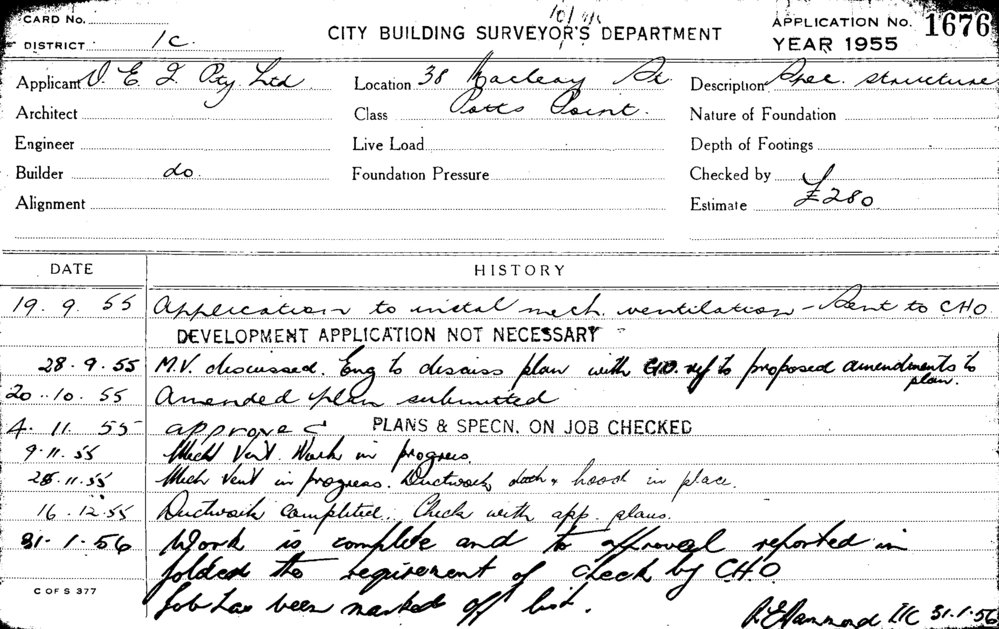 CARD No.
DISTRICT 1c.
CITY BUILDING SURVEYOR'S DEPARTMENT
APPLICATION No. 1676
YEAR 1955
Applicant O. E. I Pty. Ltd Location 38 Macleay St Description Spec. structure
Architect Class Potts Point. Nature of Foundation
Engineer Live Load Depth of Footings
Builder do. Foundation Pressure Checked by
Alignment Estimate £280
DATE HISTORY
19. 9. 55 Application to instal mech. ventilation - Sent to CHO
DEVELOPMENT APPLICATION NOT NECESSARY
28. 9. 55 M.V. discussed. Eng to discuss plan with ref to proposed amendments to
plan.
20. 10. 55 Amended plan submitted
4. 11. 55 approved PLANS & SPECN. ON JOB CHECKED
9. 11. 55 Mech Vent. Work in progress.
25. 11. 55 Mech Vent in progress. Ductwork & hood in place.
16. 12. 55 Ductwork completed. Check with app. plans.
31. 1. 56 Work is complete and to approval reported in
folder the requirement of check by C.H.O
Job has been marked off list.
11C 31.1.56
C OF S 377